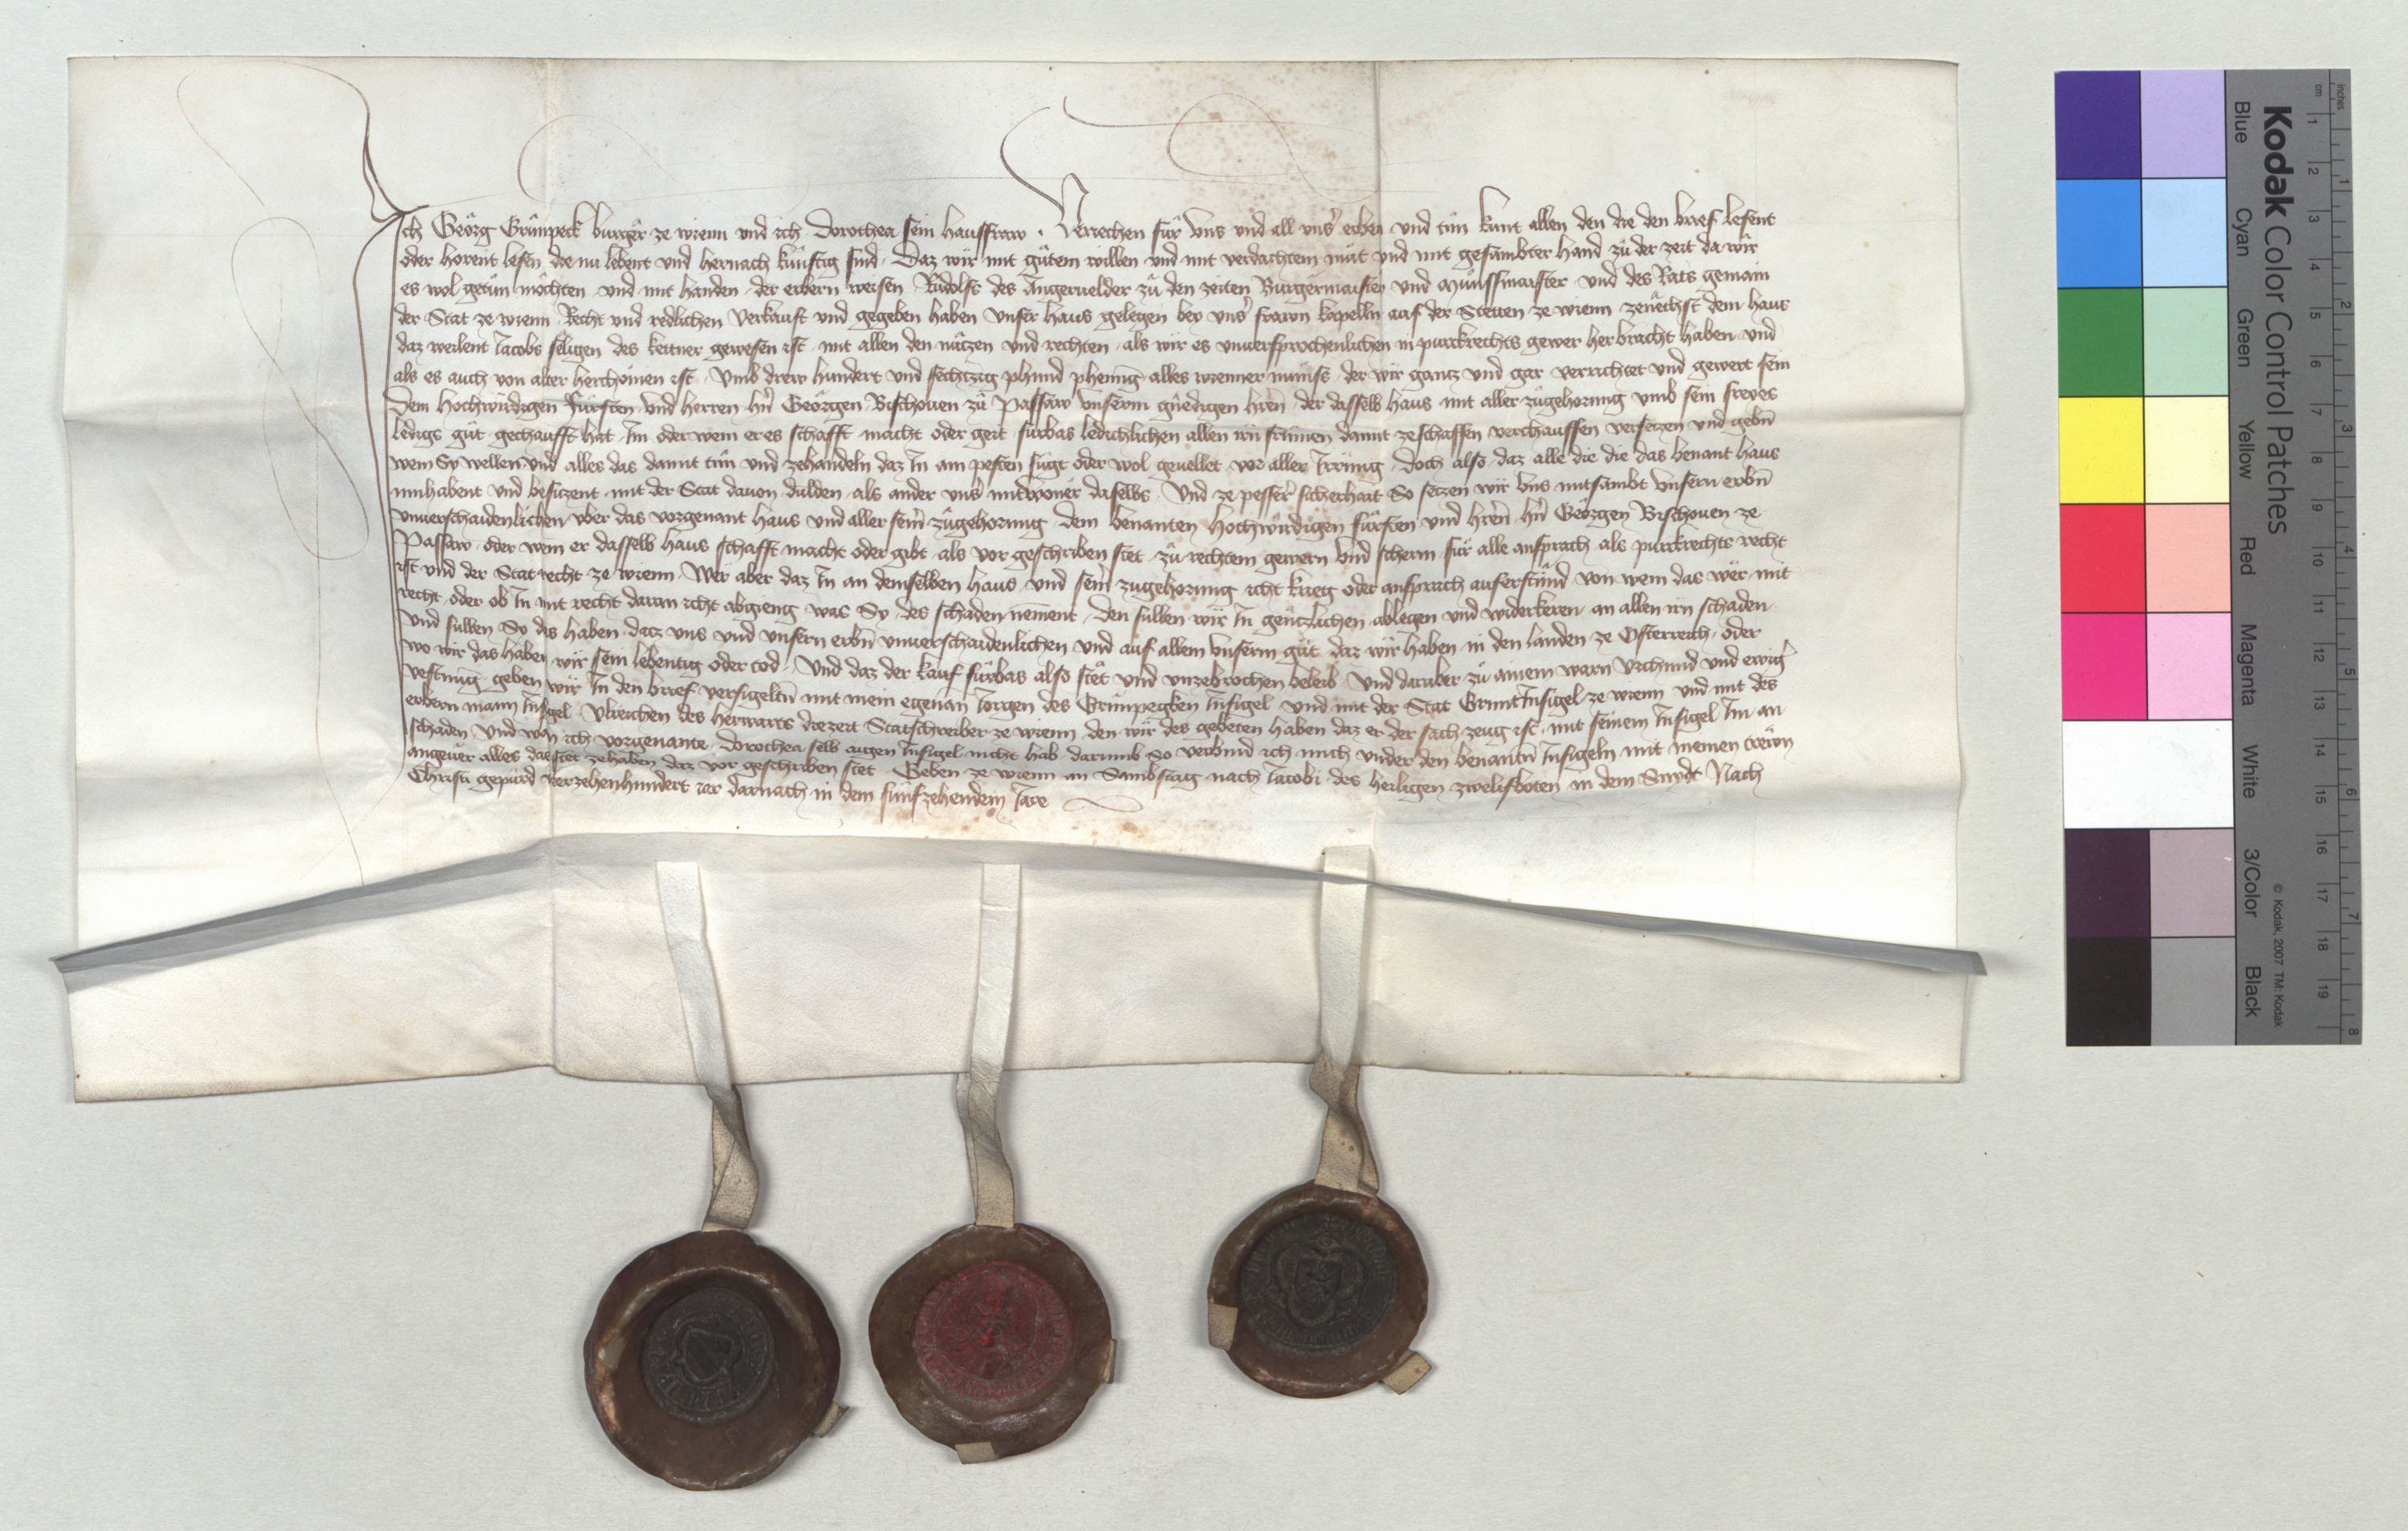 Ich Geörg Grümpeck burger ze wienn und ich Dorothea sein hausfraw . Veriechen für uns und all unsˀ erben und tün kunt allen den die den brief lesent
oder horent lesen die nu lebent und hernach künftig sind . Daz wir mit gůtem willen und mit verdachtem můt und mit gesambter hand zů der zeit da wir
es wol getůn mochten und mit handen der erbern weisen Růdolfs des Angeruelder zů den zeiten Burgermaister und Münssmaister und des Rats gemain
der Stat ze wienn Recht und redlichen verkauft und gegeben haben unser haus gelegen bey unsˀ frawn kapelln auf der Stetten ze wienn zenechst dem haus
daz weilent Jacobs seligen des kettner gewesen ist mit allen den nützen und rechten als wir es unuersprochenlichen in purkrechts gewer herbracht haben und
als es auch von alter herchömen ist . Umb drew hundert und sechtzig phund phening alles wienner münss der wir gantz und gar verrichtet und gewert sein
Dem hochwirdigen Fürsten und herren hn̄ Geörgen Bischouen zů Passaw unserm gnedigen hren̄ der dasselb haus mit aller zůgehorung umb sein freyes
ledigs gůt gechaufft hat Im oder wem er es schafft macht oder geit fürbas ledichlichen allen irn frümen damit zeschaffen verchauffen versetzen und gebn̄
wem Sy wellen und alles das damit tün und zehandeln daz In am pesten fügt oder wol geuellet vor aller Irrung . Doch also daz alle die die das benant haus
innhabent und besitzent mit der Stat dauon dulden als ander unsˀ mitwoner daselbs . Und ze pesserˀ sicherhait So setzen wir uns mitsambt unsern erbn̄
unuerschaidenlichen uber das vorgenant haus und aller seinˀ zůgehorung dem benanten hochwirdigen fürsten und hren̄ hn̄ Geörgen Bischouen ze
Passaw . oder wem er dasselb haus schafft macht oder gibt als vor geschriben stet zů rechtem gewern und scherm für alle ansprach als purkrechts recht
ist und der Stat recht ze wienn . Wër aber daz In an demselben haus und seinˀ zugehorung icht krieg oder ansprach auferstünd von wem das wër mit
recht oder ob In mit recht daran icht abgieng was Sy des schaden nement . den sullen wir In gentzlichen ablegen und widerkeren an allen irn schaden
Und sullen Sy das haben datz uns und unsern erbn̄ unuerschaidenlichen und auf allem unserm gůt daz wir haben in den landen ze Osterreich oder
wo wir das haben wir sein lebentig oder tod . Und daz der kauf fürbas also stet und unzebrochen beleib Und daruber zů ainem warn urchund und ewigˀ
vestnung geben wir In den brief versigeltn̄ mit mein egenan Jorgen des Grümpegken Insigel Und mit der Stat GruntInsigel ze wienn und mit des
erbern mann Insigel Ulreichen des herwarts diezeit Statschreiber ze wienn den wir des gebeten haben daz er der sach zeug ist mit seinem Insigel Im an
schaden Und wan ich vorgenante Dorothea selb aigen Insigel nicht hab darumb so verbind ich mich under den benantn̄ Insigeln mit meinen trewn
angeuër alles das stet zehaben daz vor geschriben stet . Geben ze wienn an Sambstag nach Jacobi des heiligen zwelifboten in dem Snydt Nach
Christi gepürd vierzehenhundert iar darnach in dem fünfzehendem Jare
Kodak Color Control Patches
Blue Cyan Green Yellow Red Magenta White 3/Color Black
© Kodak, 2007 TM: Kodak
cm 1 2 3 4 5 6 7 8 9 10 11 12 13 14 15 16 17 18 19
inches 1 2 3 4 5 6 7 8